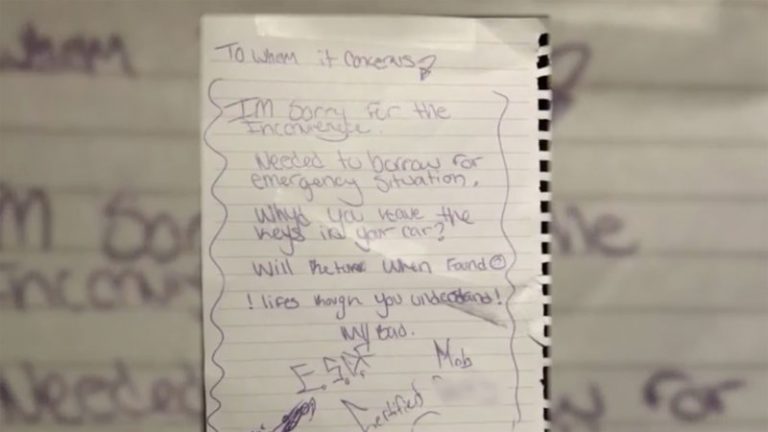 To whom it concerns
I'M Sorry for the
Inconvience.
Needed to borrow for
emergency situation.
Why'd you leave the
keys in your car?
Will When Found
! lifes though you understand!
My bad.
E.S.K
Mob
Certified